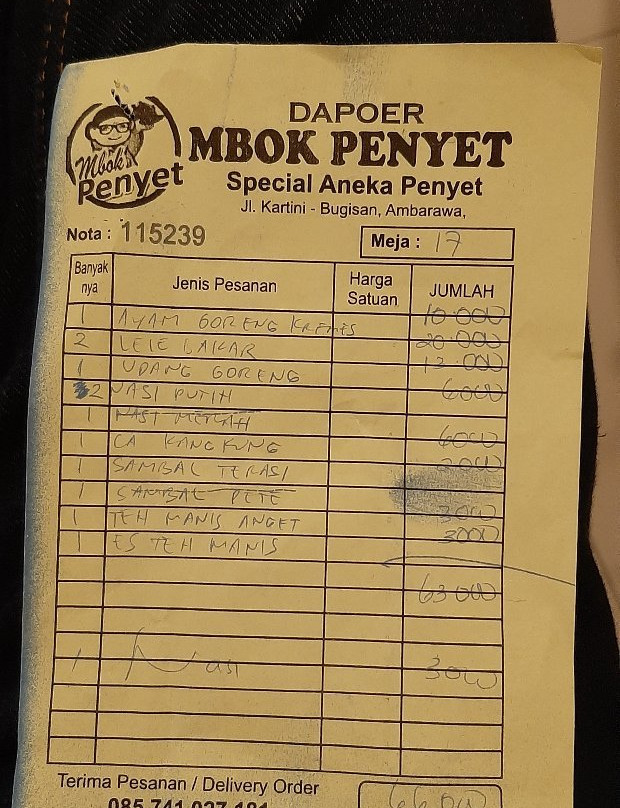 Mbok
Penyet
DAPOER
MBOK PENYET
Special Aneka Penyet
Jl. Kartini - Bugisan, Ambarawa,
Nota : 115239
Meja : 17
Banyak nya Jenis Pesanan Harga Satuan JUMLAH
1 AYAM GORENG KREMES 10.000
2 LELE BAKAR 20.000
1 UDANG GORENG 13.000
2 NASI PUTIH 6000
1 NASI MERAH
1 CA KANGKUNG 6000
1 SAMBAL TERASI 2000
1 SAMBAL PETE
1 TEH MANIS ANGET 3000
1 ES TEH MANIS 3000
63 000
1 Nasi 3000
Terima Pesanan / Delivery Order
085 741 027 181
66.000